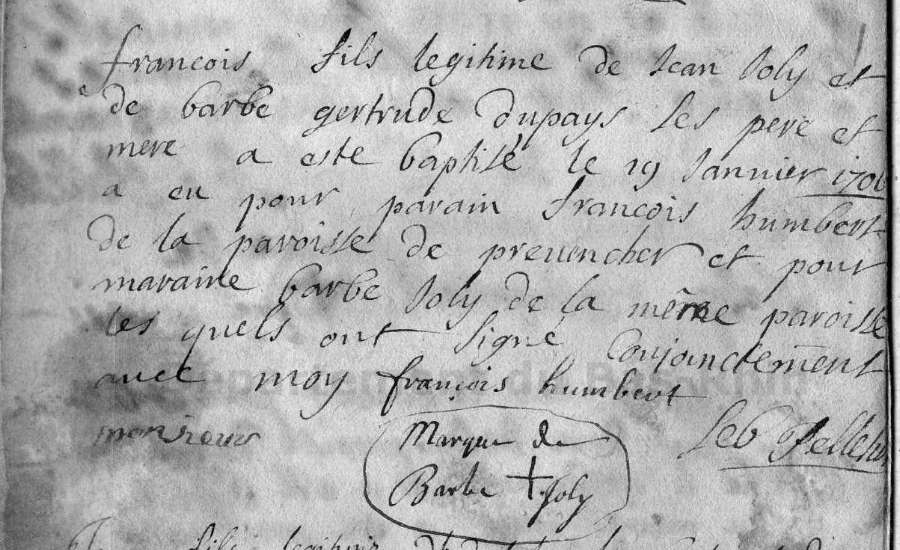 francois fils legitime de Jean Joly et
de barbe gertrude dupays les pere et
mere a este baptisé le 19 Janvier 1706
a eu pour parain francois humbert
de la paroisse de preuencher et pour
maraine barbe Joly de la même paroisse
les quels ont signé conjonctement
avec moy françois humbert
Marque de
Barbe + Joly
fils legitime